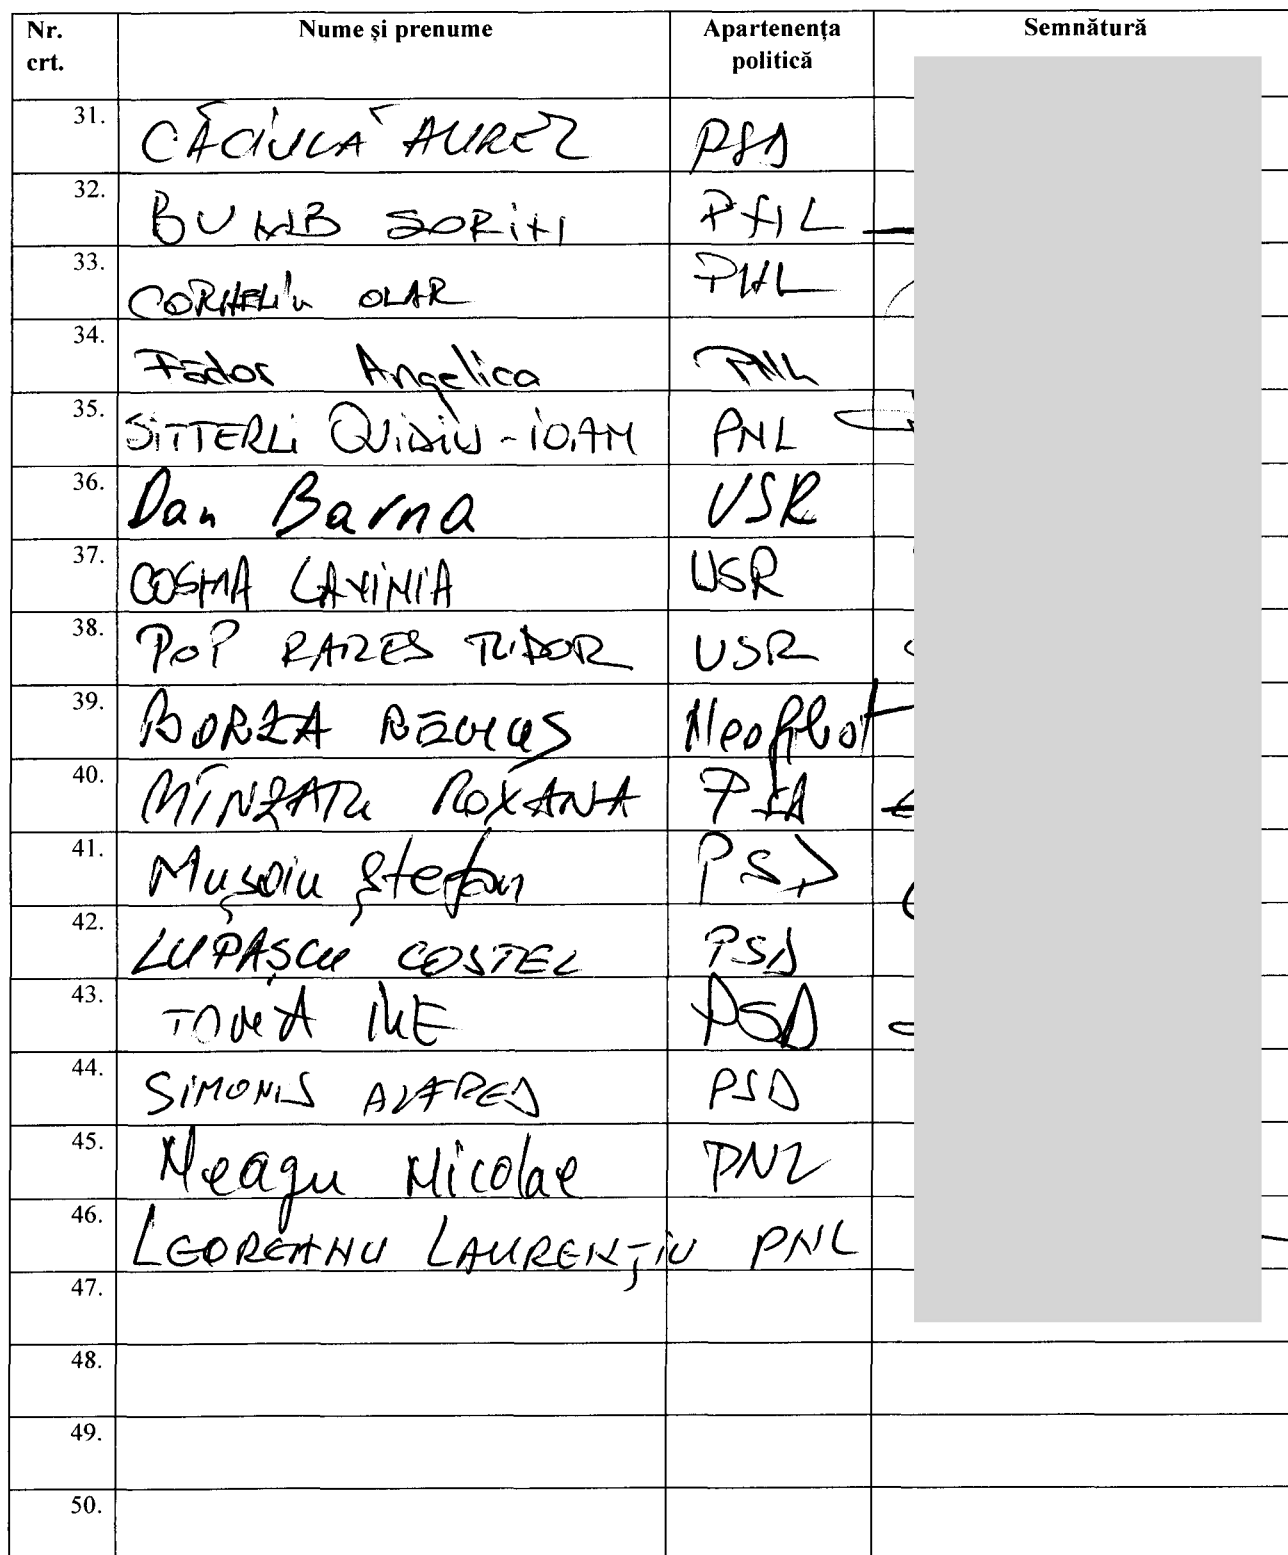 Nr. crt. Nume și prenume Apartenența politică Semnătură
31. CĂCIULĂ AUREL PSD
32. BUMB SORIN PNL
33. CORNELIU OLAR PNL
34. Fădor Angelica PNL
35. SITTERLI OVIDIU-IOAN PNL
36. Dan Barna USR
37. COSMA LAVINIA USR
38. POP RAREȘ TUDOR USR
39. BORZA REMUS Neafiliat
40. MÎNZATU ROXANA PSD
41. Mușoiu Ștefan PSD
42. LUPAȘCU COSTEL PSD
43. TOMA ILIE PSD
44. SIMONIS ALFRED PSD
45. Neagu Nicolae PNL
46. LEOREANU LAURENȚIU PNL
47.
48.
49.
50.